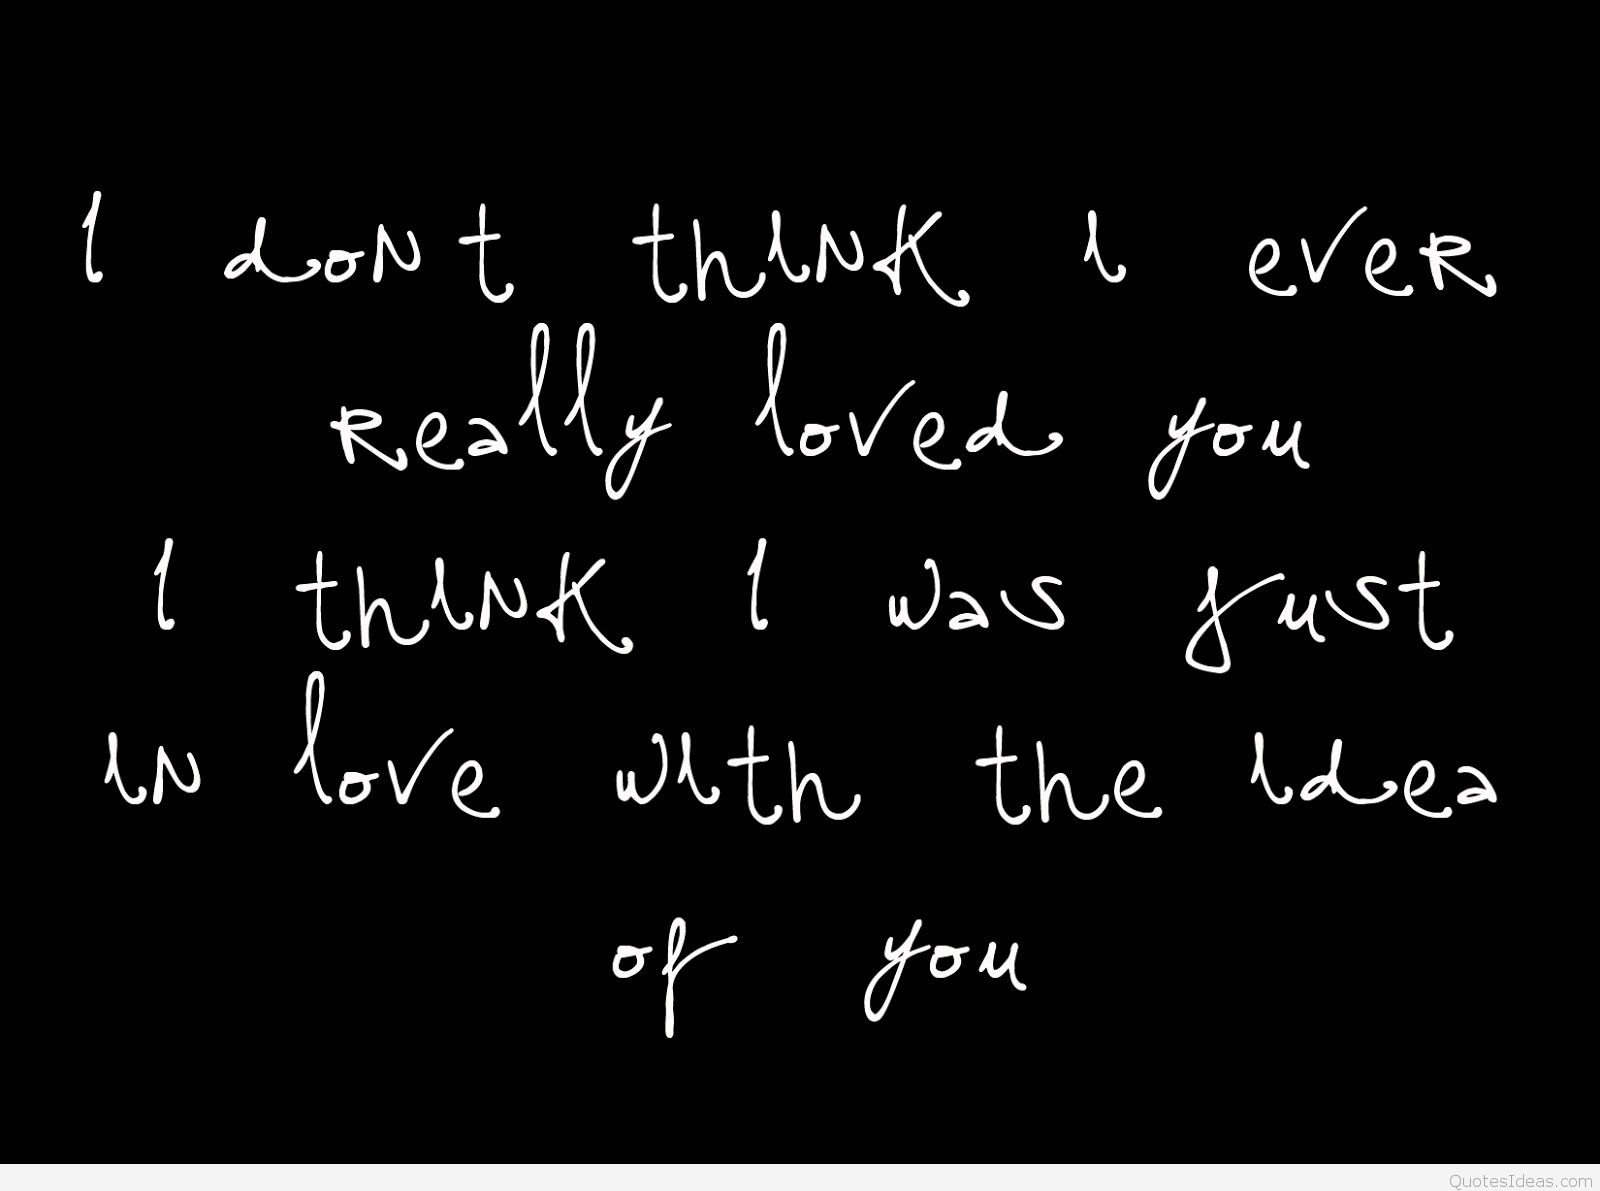 I don t think i ever
really loved you
I think I was just
in love with the idea
of you
QuotesIdeas.com